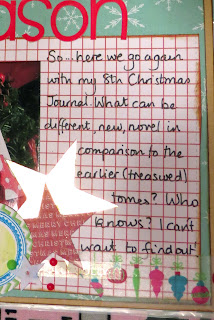 ason
So... here we go again
with my 8th Christmas
Journal. What can be
different, new, novel in
comparison to the
earlier (treasured)
tomes? Who
knows? I can't
wait to find out
MERRY CHRIST